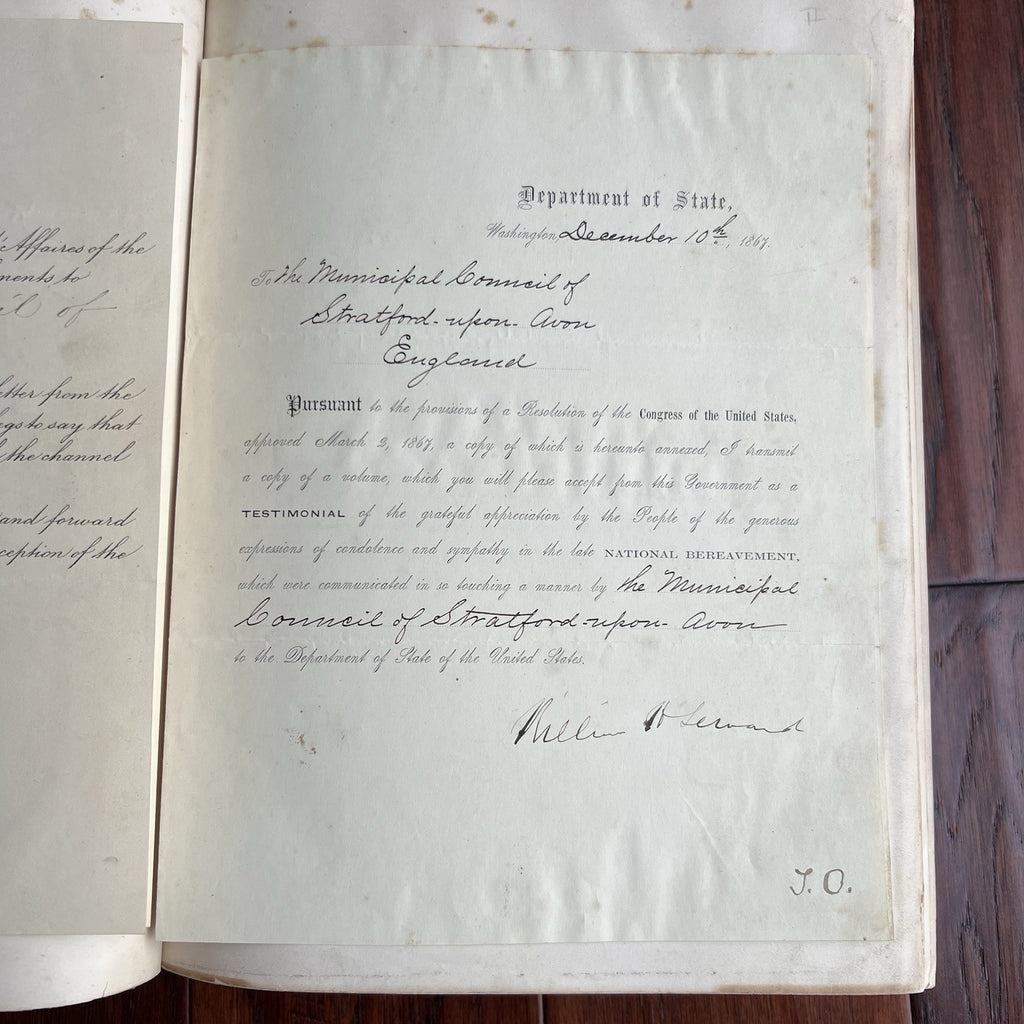 é Affaires of the
ments to
il of
etter from the
egs to say that
the channel
and forward
ception of the
Department of State,
Washington, December 10th, 1867.
To the Municipal Council of
Stratford-upon-Avon
England
Pursuant to the provisions of a Resolution of the Congress of the United States,
approved March 2, 1867, a copy of which is hereunto annexed, I transmit
a copy of a volume, which you will please accept from this Government as a
TESTIMONIAL of the grateful appreciation by the People of the generous
expressions of condolence and sympathy in the late NATIONAL BEREAVEMENT,
which were communicated in so touching a manner by the Municipal
Council of Stratford-upon-Avon
to the Department of State of the United States.
William H Seward
J.O.